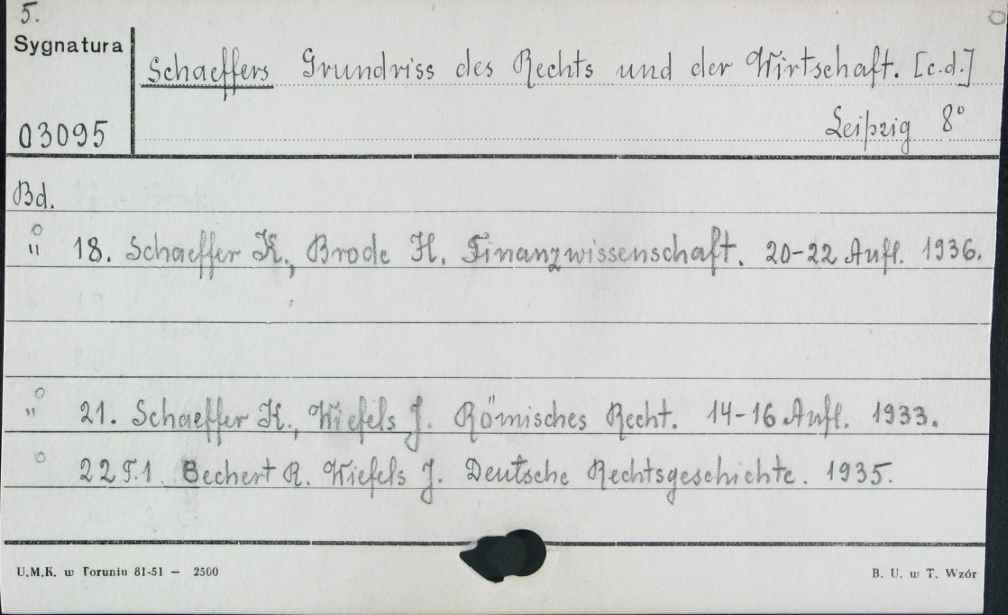 5.
Sygnatura
Schaeffers Grundriss des Rechts und der Wirtschaft. [c.d.]
03095
Leipzig 8°
Bd.
" 18. Schaeffer K., Brode H. Finanzwissenschaft. 20-22 Aufl. 1936.
" 21. Schaeffer K., Wiefels J. Römisches Recht. 14-16 Aufl. 1933.
22 T.1 Bechert R. Wiefels J. Deutsche Rechtsgeschichte. 1935.
U.M.K. w Toruniu 81-51 — 2500
B. U. w T. Wzór